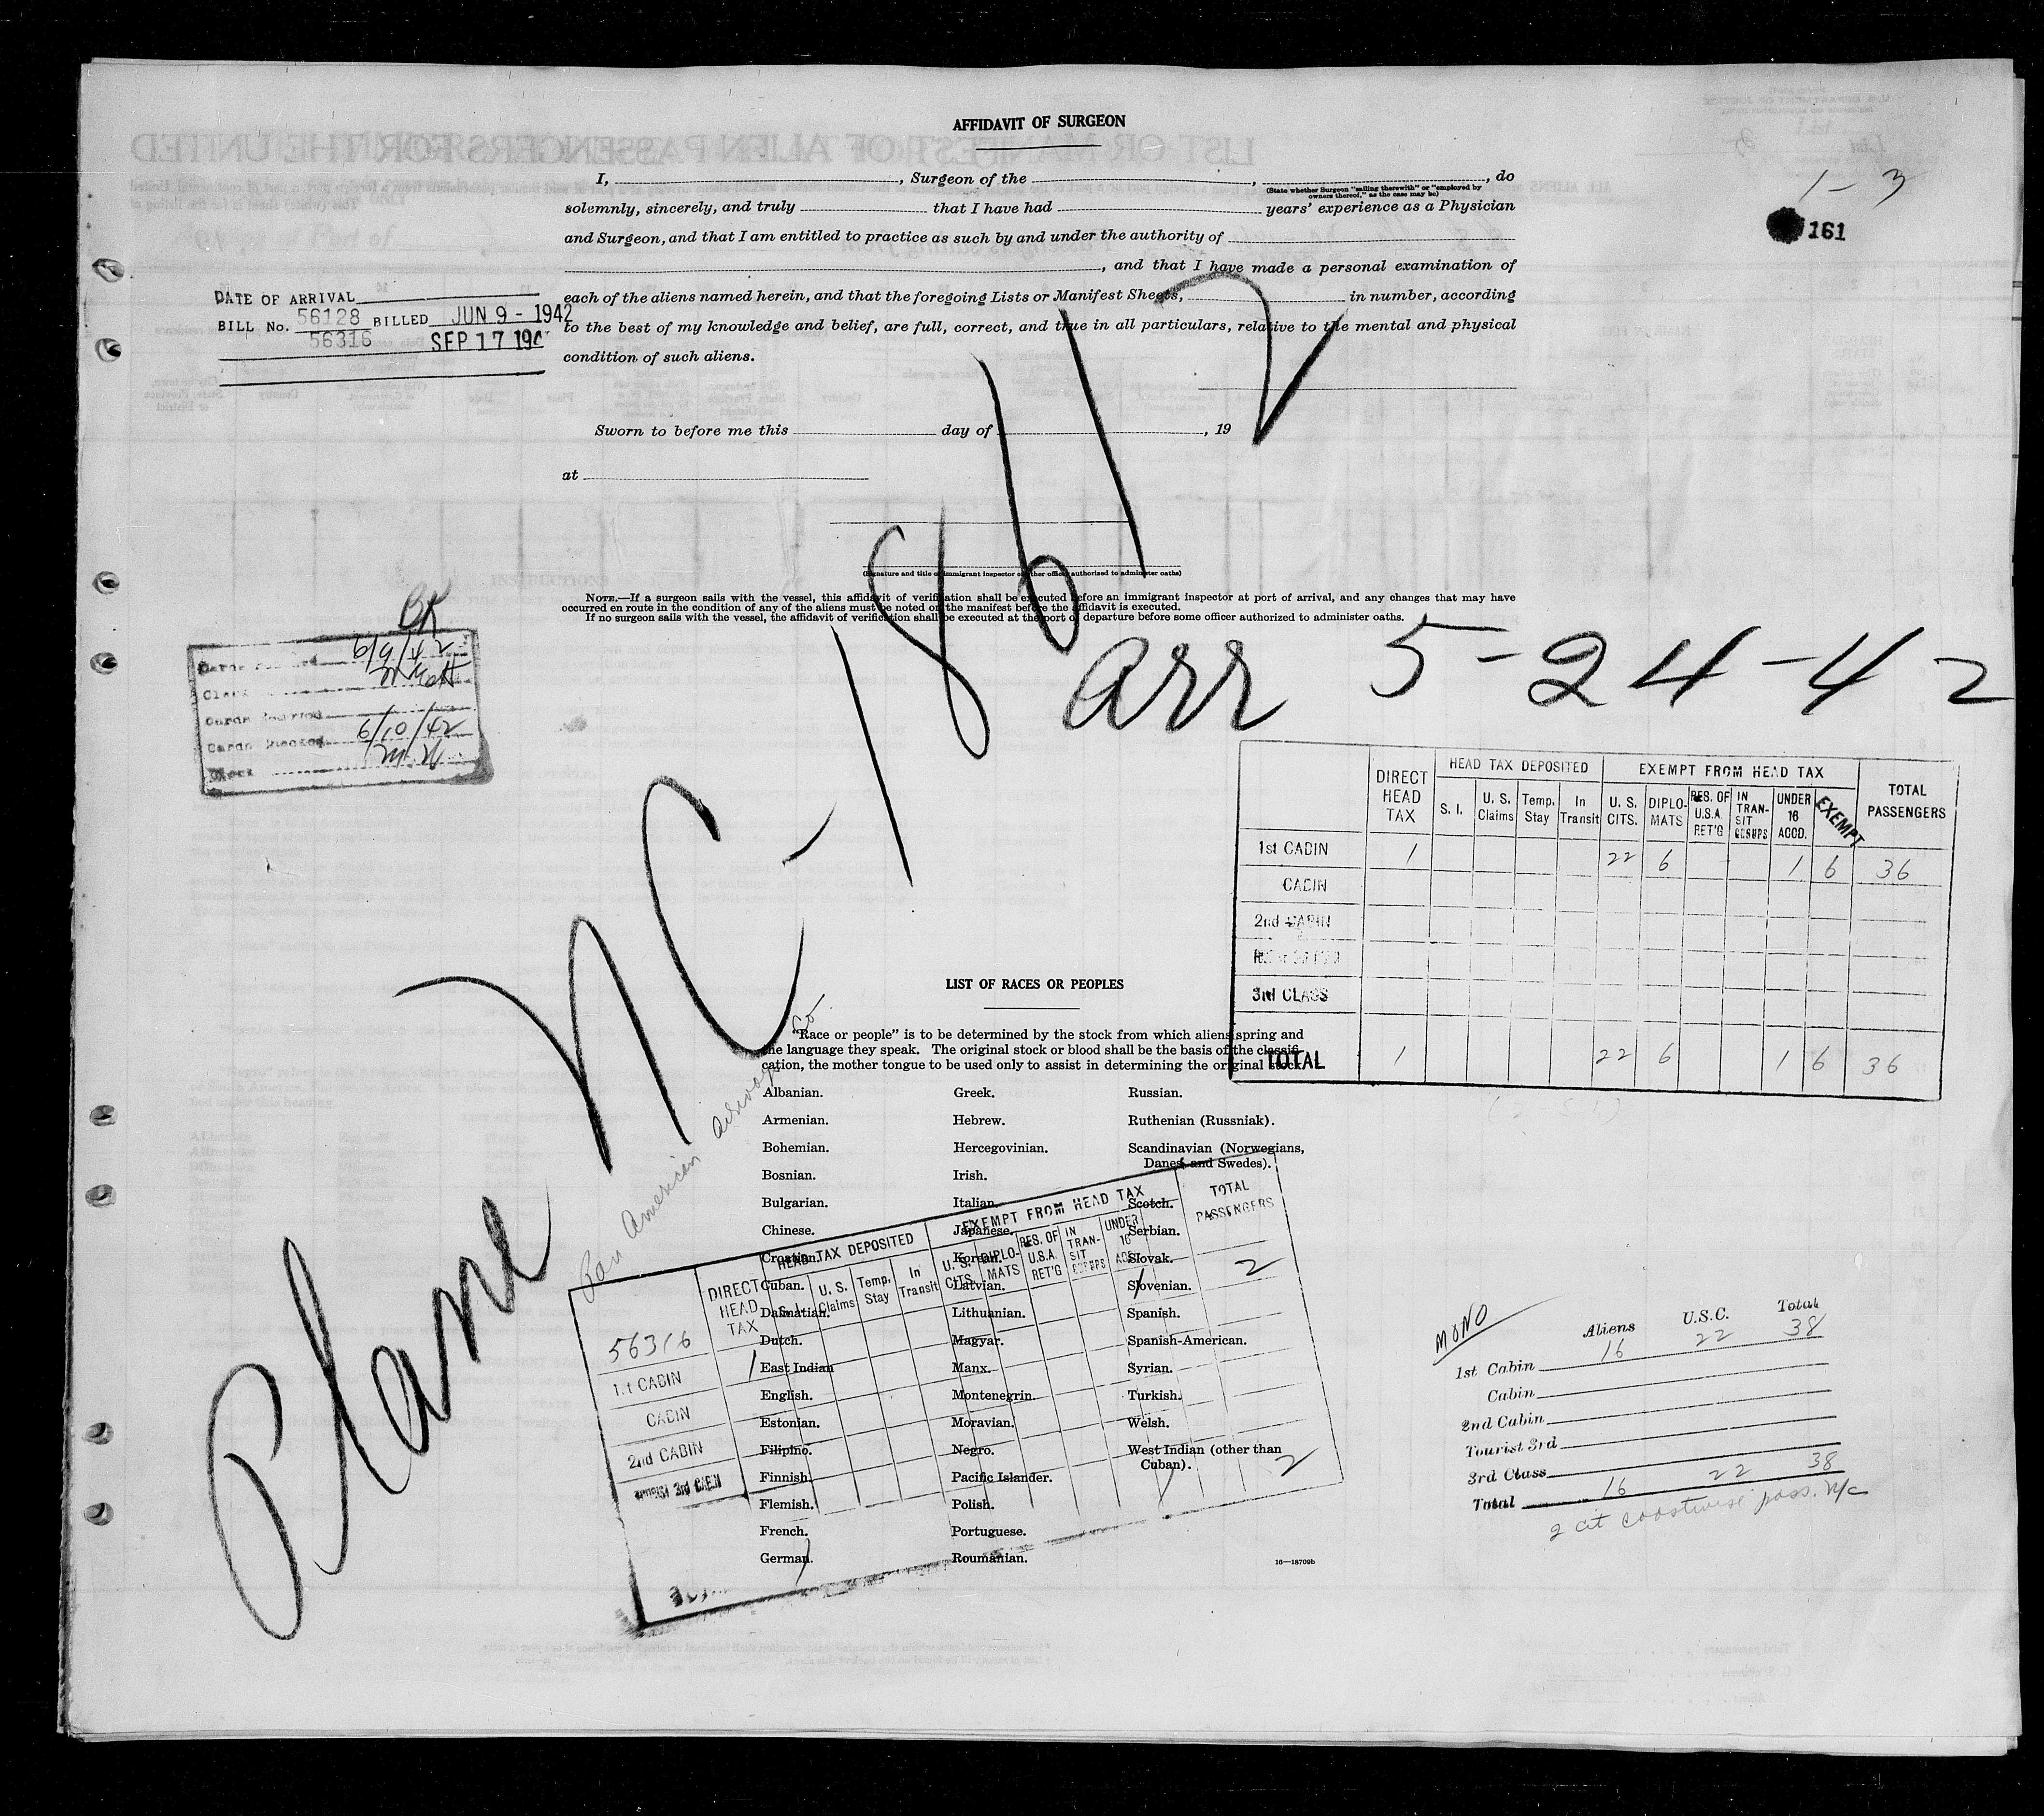 AFFIDAVIT OF SURGEON
I, , Surgeon of the , , do
(State whether Surgeon "sailing therewith" or "employed by
owners thereof," as the case may be)
solemnly, sincerely, and truly that I have had years' experience as a Physician
and Surgeon, and that I am entitled to practice as such by and under the authority of
, and that I have made a personal examination of
each of the aliens named herein, and that the foregoing Lists or Manifest Sheets, in number, according
to the best of my knowledge and belief, are full, correct, and true in all particulars, relative to the mental and physical
condition of such aliens.
Sworn to before me this day of , 19
at
(Signature and title of immigrant inspector or other officer authorized to administer oaths)
NOTE.—If a surgeon sails with the vessel, this affidavit of verification shall be executed before an immigrant inspector at port of arrival, and any changes that may have
occurred en route in the condition of any of the aliens must be noted on the manifest before the affidavit is executed.
If no surgeon sails with the vessel, the affidavit of verification shall be executed at the port of departure before some officer authorized to administer oaths.
1-3
161
DATE OF ARRIVAL
BILL No. 56128 BILLED JUN 9 - 1942
56316 SEP 17 194
OK
6/9/42
Clerk
6/10/42
Plane NC-18612
arr 5-24-42
Pan American Airways Co.
DIRECT HEAD TAX
HEAD TAX DEPOSITED
EXEMPT FROM HEAD TAX
TOTAL PASSENGERS
S. I. U. S. Claims Temp. Stay In Transit U. S. CITS. DIPLO-MATS RES. OF U.S.A. RET'G IN TRAN-SIT GROUPS UNDER 16 ACCD. EXEMPT
1st CABIN 1 22 6 1 6 36
CABIN
2nd CABIN
3rd CLASS
TOTAL 1 22 6 1 6 36
LIST OF RACES OR PEOPLES
"Race or people" is to be determined by the stock from which aliens spring and
the language they speak. The original stock or blood shall be the basis of the classifi-
cation, the mother tongue to be used only to assist in determining the original stock.
Albanian.
Armenian.
Bohemian.
Bosnian.
Bulgarian.
Chinese.
Croatian.
Cuban.
Dalmatian.
Dutch.
East Indian
English.
Estonian.
Filipino.
Finnish.
Flemish.
French.
German.
Greek.
Hebrew.
Hercegovinian.
Irish.
Italian.
Japanese.
Korean.
Latvian.
Lithuanian.
Magyar.
Manx.
Montenegrin.
Moravian.
Negro.
Pacific Islander.
Polish.
Portuguese.
Roumanian.
Russian.
Ruthenian (Russniak).
Scandinavian (Norwegians,
Danes and Swedes).
Scotch.
Serbian.
Slovak.
Slovenian.
Spanish.
Spanish-American.
Syrian.
Turkish.
Welsh.
West Indian (other than
Cuban).
16—18709b
DIRECT HEAD TAX
HEAD TAX DEPOSITED
EXEMPT FROM HEAD TAX
TOTAL PASSENGERS
U. S. Claims Temp. Stay In Transit U. S. CITS. DIPLO-MATS RES. OF U.S.A. RET'G IN TRAN-SIT GROUPS UNDER 16
56316
1st CABIN 1 1 2
CABIN
2nd CABIN
TOURIST 3rd CABIN
1 1 2
MONO
Aliens U.S.C. Total
1st Cabin 16 22 38
Cabin
2nd Cabin
Tourist 3rd
3rd Class
Total 16 22 38
2 cit coastwise pass. N/C